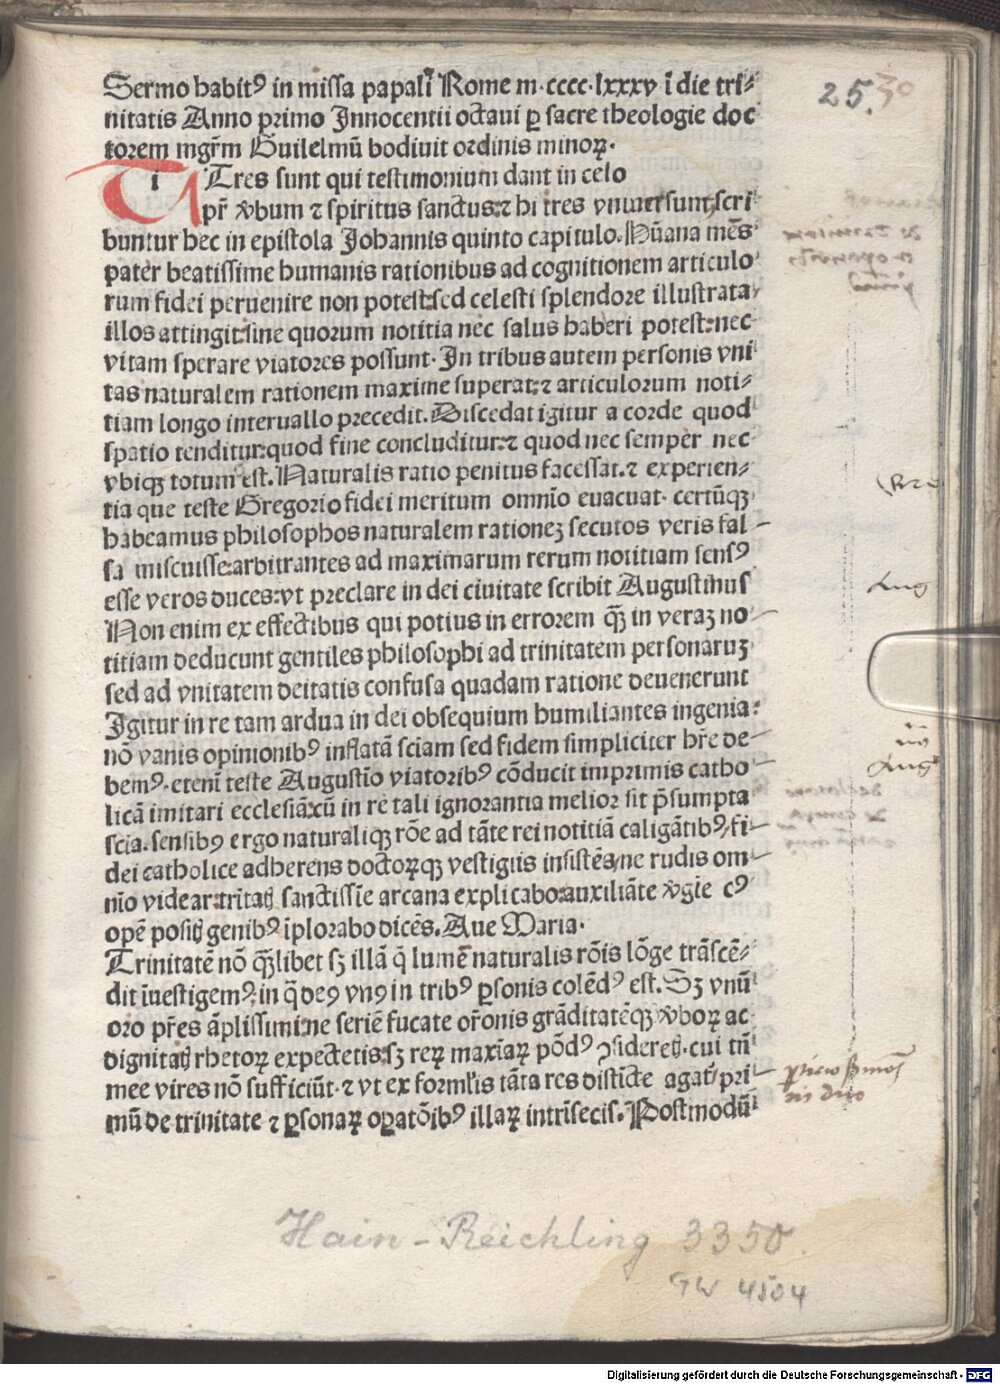 Sermo habitꝰ in missa papali Rome m.cccc.lxxxv ī die tri⸗
nitatis Anno primo Innocentii octaui ꝑ sacre theologie doc
torem mgr̄m Guilelmū bodiuit ordinis minoꝝ.
TRes sunt qui testimonium dant in celo
pr̄ v̄bum ⁊ spiritus sanctus:⁊ hi tres vnum sunt, scri
buntur hec in epistola Johannis quinto capitulo. Hūana mēs
pater beatissime humanis rationibus ad cognitionem articulo
rum fidei peruenire non potest:sed celesti splendore illustrata
illos attingit:sine quorum notitia nec salus haberi potest:nec
vitam sperare viatores possunt. In tribus autem personis vni
tas naturalem rationem maxime superat:⁊ articulorum noti⸗
tiam longo interuallo precedit. Discedat igitur a corde quod
spatio tenditur:quod fine concluditur:⁊ quod nec semper nec
vbiqꝫ totum est. Naturalis ratio penitus facessat.⁊ experien⸗
tia que teste Gregorio fidei meritum omnīo euacuat. certūqꝫ
habeamus philosophos naturalem rationeꝫ secutos veris fal
sa miscuisse:arbitrantes ad maximarum rerum notitiam sensꝰ
esse veros duces:vt preclare in dei ciuitate scribit Augustinus
Non enim ex effectibus qui potius in errorem q̄ꝫ in veraꝫ no
titiam deducunt gentiles philosophi ad trinitatem personaruꝫ
sed ad vnitatem deitatis confusa quadam ratione deuenerunt
Igitur in re tam ardua in dei obsequium humiliantes ingenia:
nō vanis opinionibꝰ inflatā sciam sed fidem simpliciter hr̄e de
bemꝰ. etenī teste Augustīo viatoribꝰ cōducit imprimis catho
licā imitari ecclesiā:cū in re tali ignorantia melior sit p̄sumpta
scia. sensibꝰ ergo naturaliqꝫ rōe ad tāte rei notitiā caligātibꝰ, fi
dei catholice adherens doctoꝝqꝫ vestigiis insistēs, ne rudis om
nīo videar:trītatꝭ sanctissīe arcana explicabo:auxiliāte v̄gīe cꝰ
opē positꝭ genibꝰ īplorabo dicēs. Aue Maria.
Trinitatē nō q̄ꝫlibet sꝫ illā q̄ lumē naturalis rōis lōge trāscē⸗
dit īuestigemꝰ, in q̄ deꝰ vnꝰ in tribꝰ ꝑsonis colēdꝰ est. Sꝫ vnū
oro pr̄es āplissimi:ne seriē fucate or̄onis grāditatēqꝫ v̄boꝝ ac
dignitatꝭ rhetoꝝ expectetis:sꝫ reꝝ maxīaꝝ pōdꝰ ꝯsideretꝭ. cui tn̄
mee vires nō sufficiūt. ⁊ vt ex formul̄is tāta res disticte agat᷑, pri
mū de trinitate ⁊ ꝑsonaꝝ oꝑatōibꝰ illaꝝ intrīsecis. Postmodū
25.
30
Aug
Aug
Hain - Reichling 3350.
GW 4504
Digitalisierung gefördert durch die Deutsche Forschungsgemeinschaft - DFG